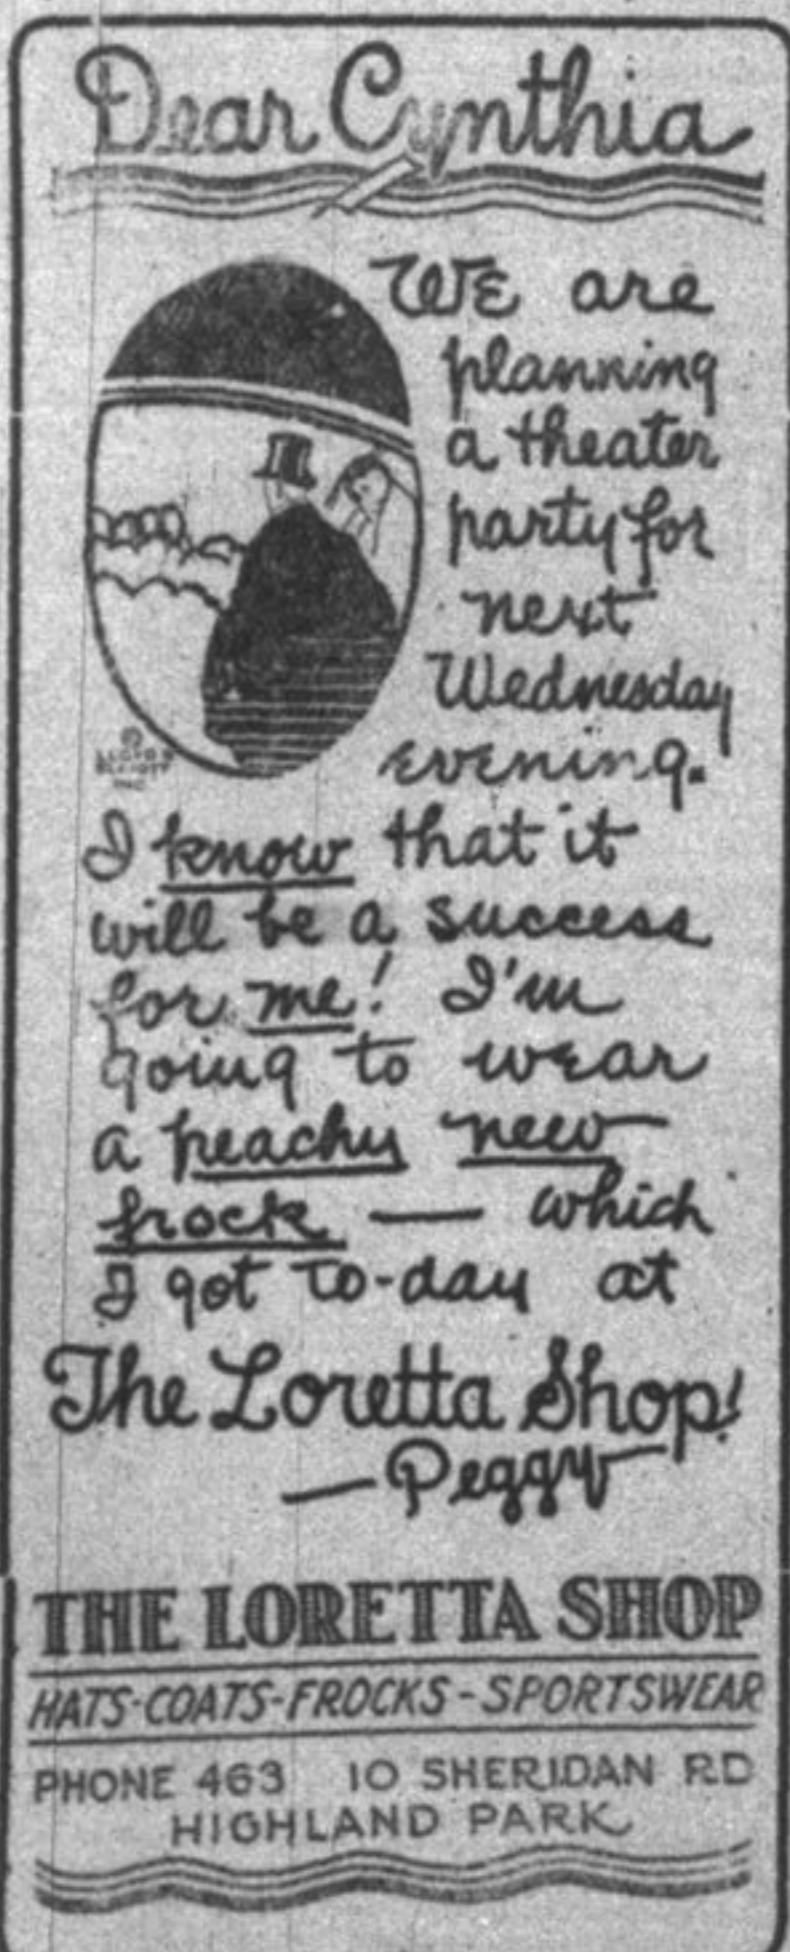 Dear Cynthia
We are
planning
a theater
party for
next
Wednesday
evening.
I know that it
will be a success
for me! I'm
going to wear
a peachy new
frock — which
I got to-day at
The Loretta Shop!
— Peggy
THE LORETTA SHOP
HATS-COATS-FROCKS-SPORTSWEAR
PHONE 463 10 SHERIDAN RD
HIGHLAND PARK